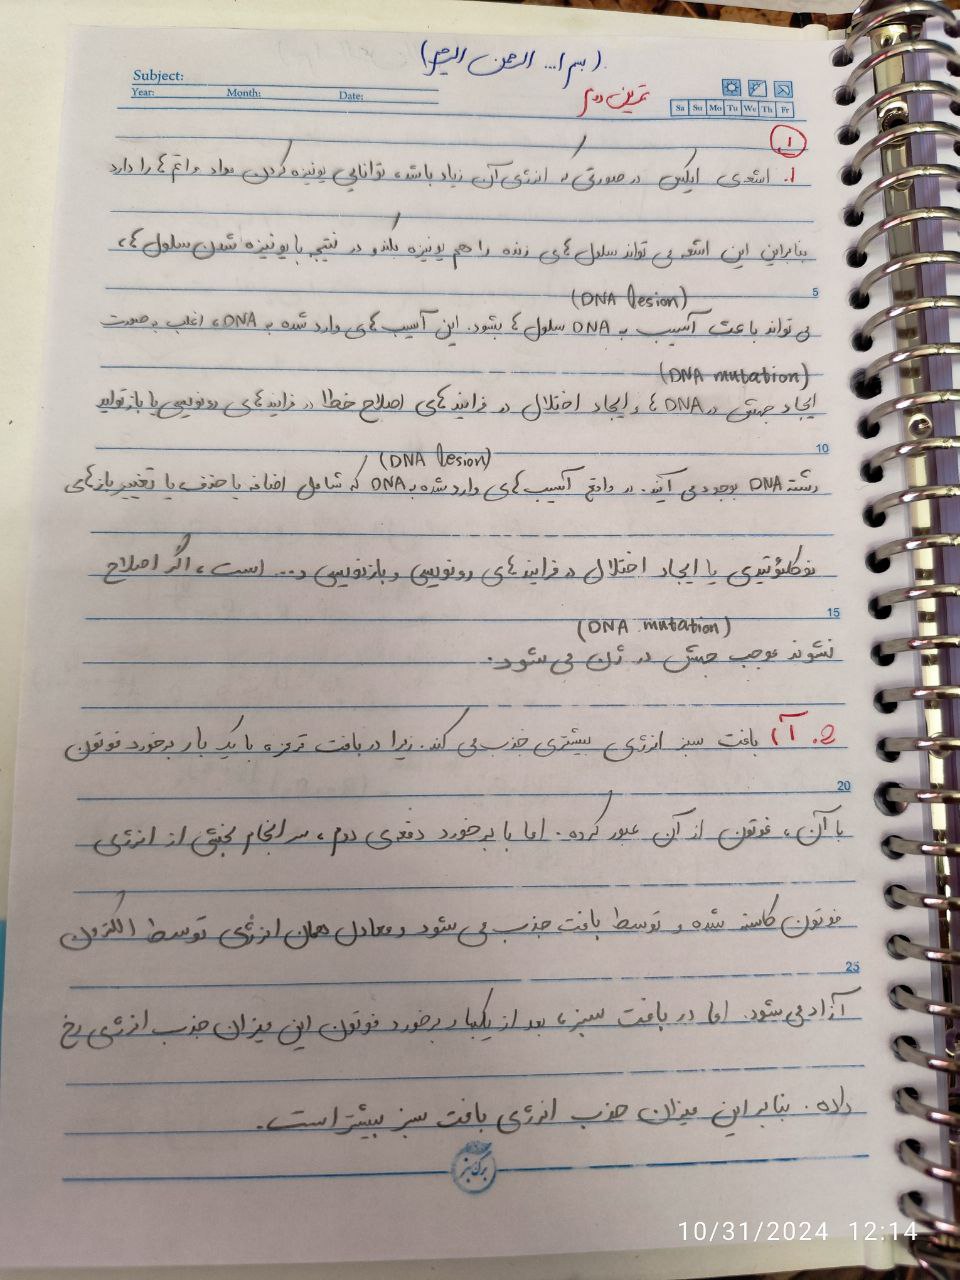 (بسم ا... الرحمن الرحیم)
Subject:
Year: Month: Date:
تمرین دوم
Sa Su Mo Tu We Th Fr
۱
۱. اشعه‌ی ایکس در صورتی که انرژی آن زیاد باشد، توانایی یونیزه کردن مواد و اتم ها را دارد
بنابراین این اشعه می تواند سلول های زنده را هم یونیزه بکند و در نتیجه با یونیزه شدن سلول ها،
5
(DNA lesion)
می تواند باعث آسیب به DNA سلول ها بشود. این آسیب های وارد شده به DNA، اغلب به صورت
(DNA mutation)
ایجاد جهش در DNA ها و ایجاد اختلال در فرایندهای اصلاح خطا در فرایندهای رونویسی یا بازتولید
10
(DNA lesion)
رشته DNA بوجود می آیند. در واقع آسیب های وارد شده به DNA که شامل اضافه یا حذف یا تغییر بازهای
نوکلئوتیدی یا ایجاد اختلال در فرایندهای رونویسی و بازنویسی و... است، اگر اصلاح
15
(DNA mutation)
نشوند موجب جهش در ژن می شود.
2. آ) بافت سبز انرژی بیشتری جذب می کند. زیرا در بافت قرمز، با یک بار برخورد فوتون
20
با آن، فوتون از آن عبور کرده. اما با برخورد دفعه‌ی دوم، سرانجام بخشی از انرژی
فوتون کاسته شده و توسط بافت جذب می شود و معادل همان انرژی توسط الکترون
25
آزاد می شود. اما در بافت سبز، بعد از یکبار برخورد فوتون این میزان جذب انرژی رخ
داده. بنابراین میزان جذب انرژی بافت سبز بیشتر است.
برگ سبز
10/31/2024 12:14